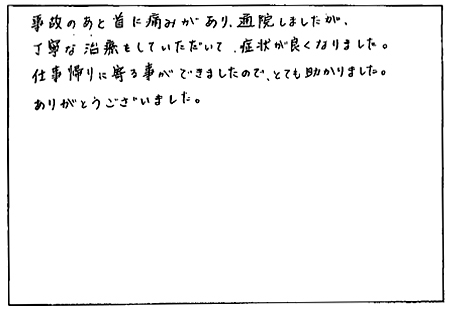 事故のあと首に痛みがあり、通院しましたが、
丁寧な治療をしていただいて、症状が良くなりました。
仕事帰りに寄る事ができましたので、とても助かりました。
ありがとうございました。